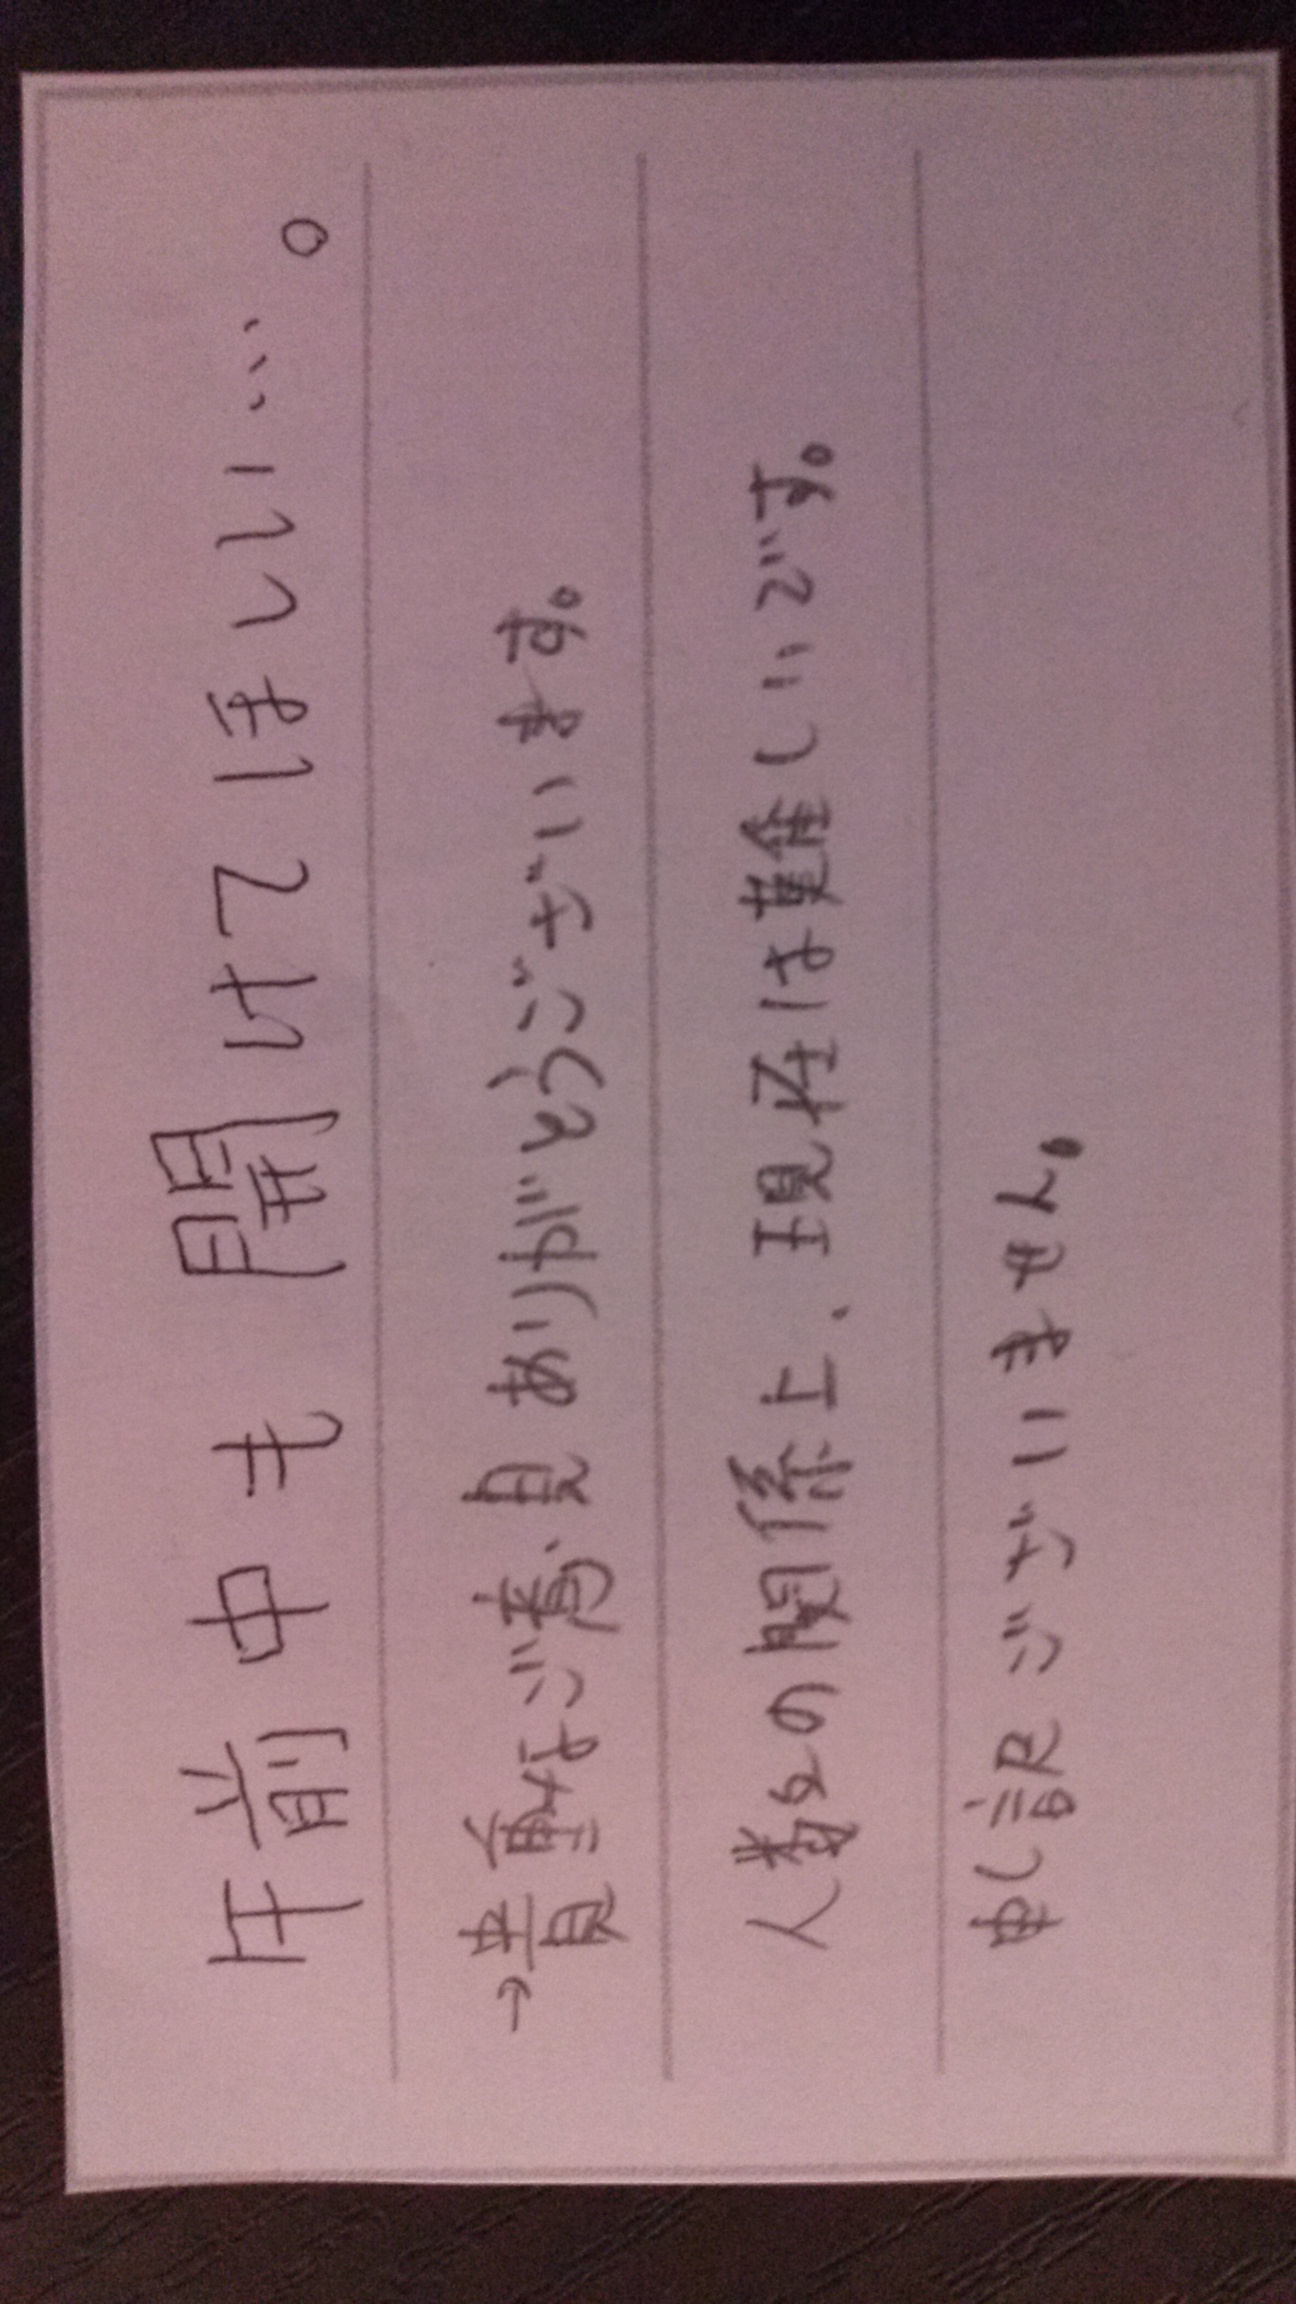 午前中も開けてほしい…。
→貴重なご意見ありがとうございます。
人数の関係上、現在は難しいです。
申し訳ございません。